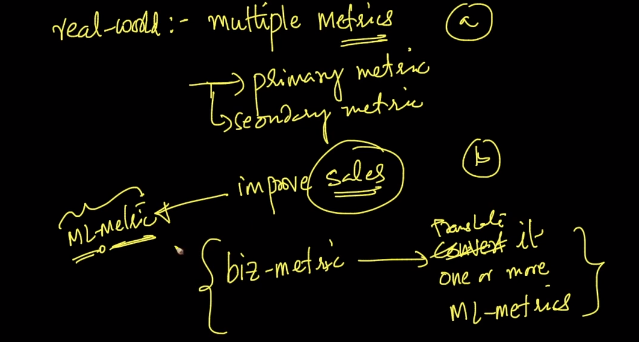 real-world:- multiple metrics (a)
primary metric
secondary metric
(b)
improve sales
ML-metric
biz-metric
translate it
one or more
ML-metrics